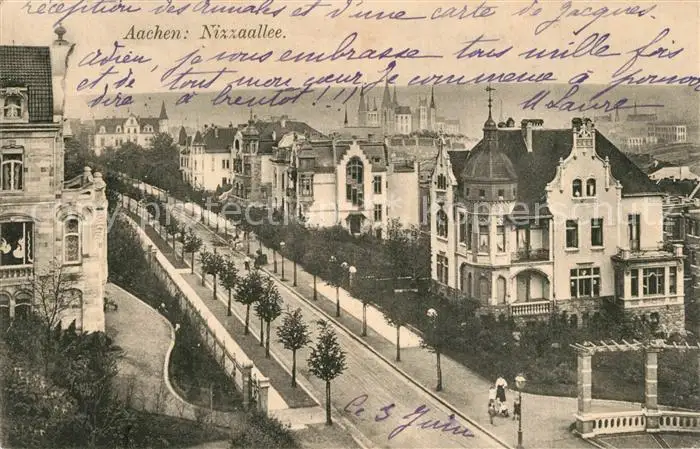 réception des annales et d'une carte de Jacques.
Aachen: Nizzaallee.
adieu, je vous embrasse tous mille fois
et de tout mon cœur je commence à pouvoir
dire à bientôt!!!
Laure
Ce 3 Juin